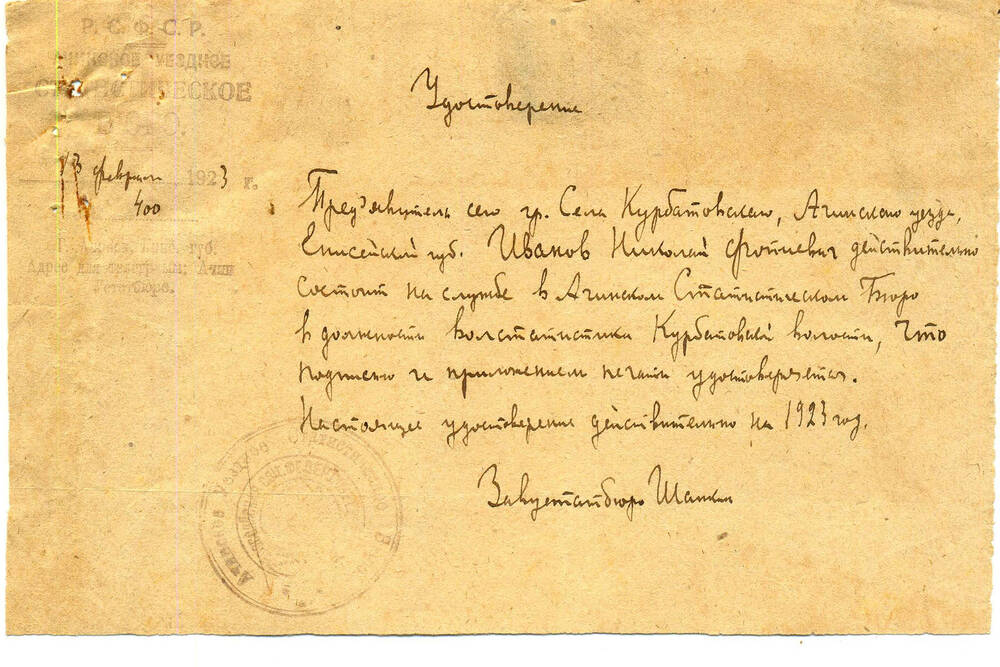 Р. С. Ф. С. Р.
УЕЗДНОЕ
СТАТИСТИЧЕСКОЕ
БЮРО.
13 февраля 1923 г.
400
Адрес для телеграмм: Ачин
Устатбюро.
Удостоверение
Пред'явитель сего гр. Села Курбатовского, Ачинского уезда,
Енисейской губ. Иванов Николай Фотиевич действительно
состоит на службе в Ачинском Статистическом Бюро
в должности волстатистика Курбатовской волости, что
подписью и приложением печати удостоверяется.
Настоящее удостоверение действительно на 1923 год.
Завустатбюро